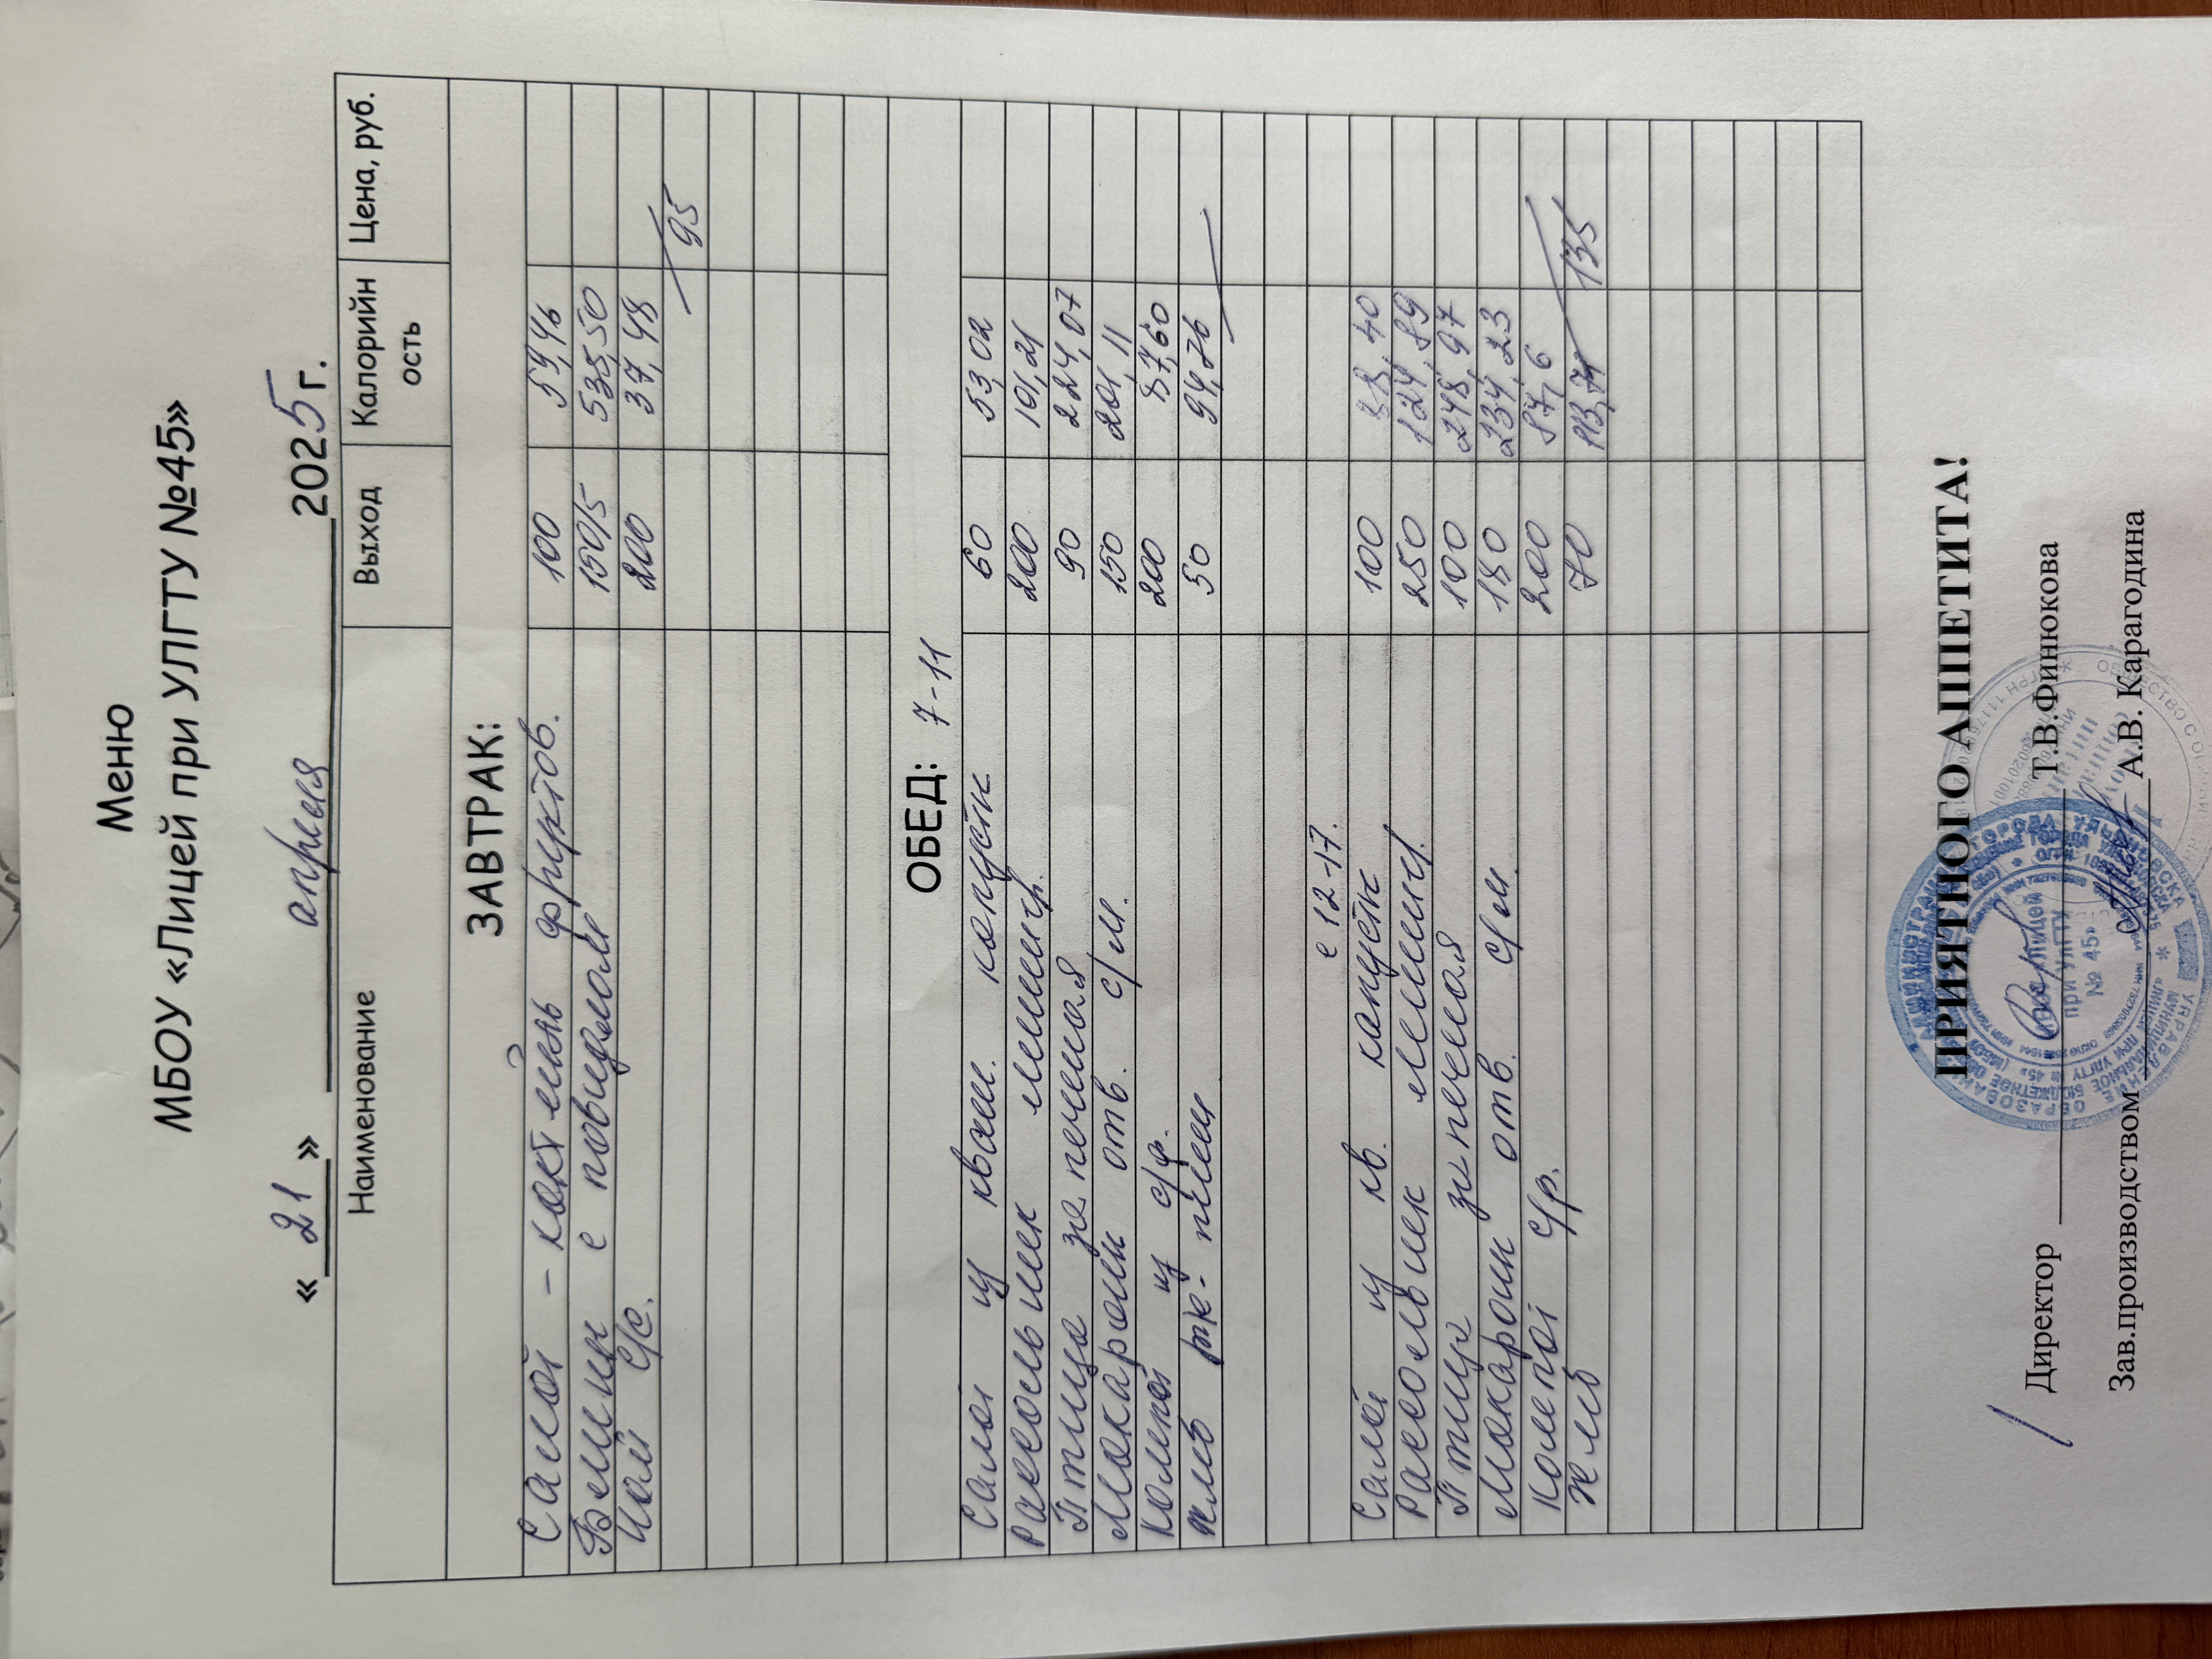 Меню
МБОУ «Лицей при УЛГТУ №45»
« 21 » апреля 2025 г.
Наименование Выход Калорийность Цена, руб.
ЗАВТРАК:
Салат - коктейль фруктов. 100 59,46
Блины с повидлом 150/5 535,50
Чай с/с. 200 37,48
95
ОБЕД: 7-11
Салат из кваш. капусты 60 53,02
Рассольник ленингр. 200 101,21
Птица запеченая 90 224,07
Макароны отв. с/м. 150 201,11
Компот из с/ф. 200 87,60
Хлеб рж-пшен 50 94,26
с 12-17.
Салат из кв. капусты 100 88,40
Рассольник ленингр. 250 124,89
Птица запеченая 100 248,97
Макароны отв. с/м 180 234,23
Компот с/ф. 200 87,6
Хлеб 70 113,74
135
ПРИЯТНОГО АППЕТИТА!
Директор Т.В.Финюкова
Зав.производством А.В. Карагодина
при УлГТУ
№ 45»